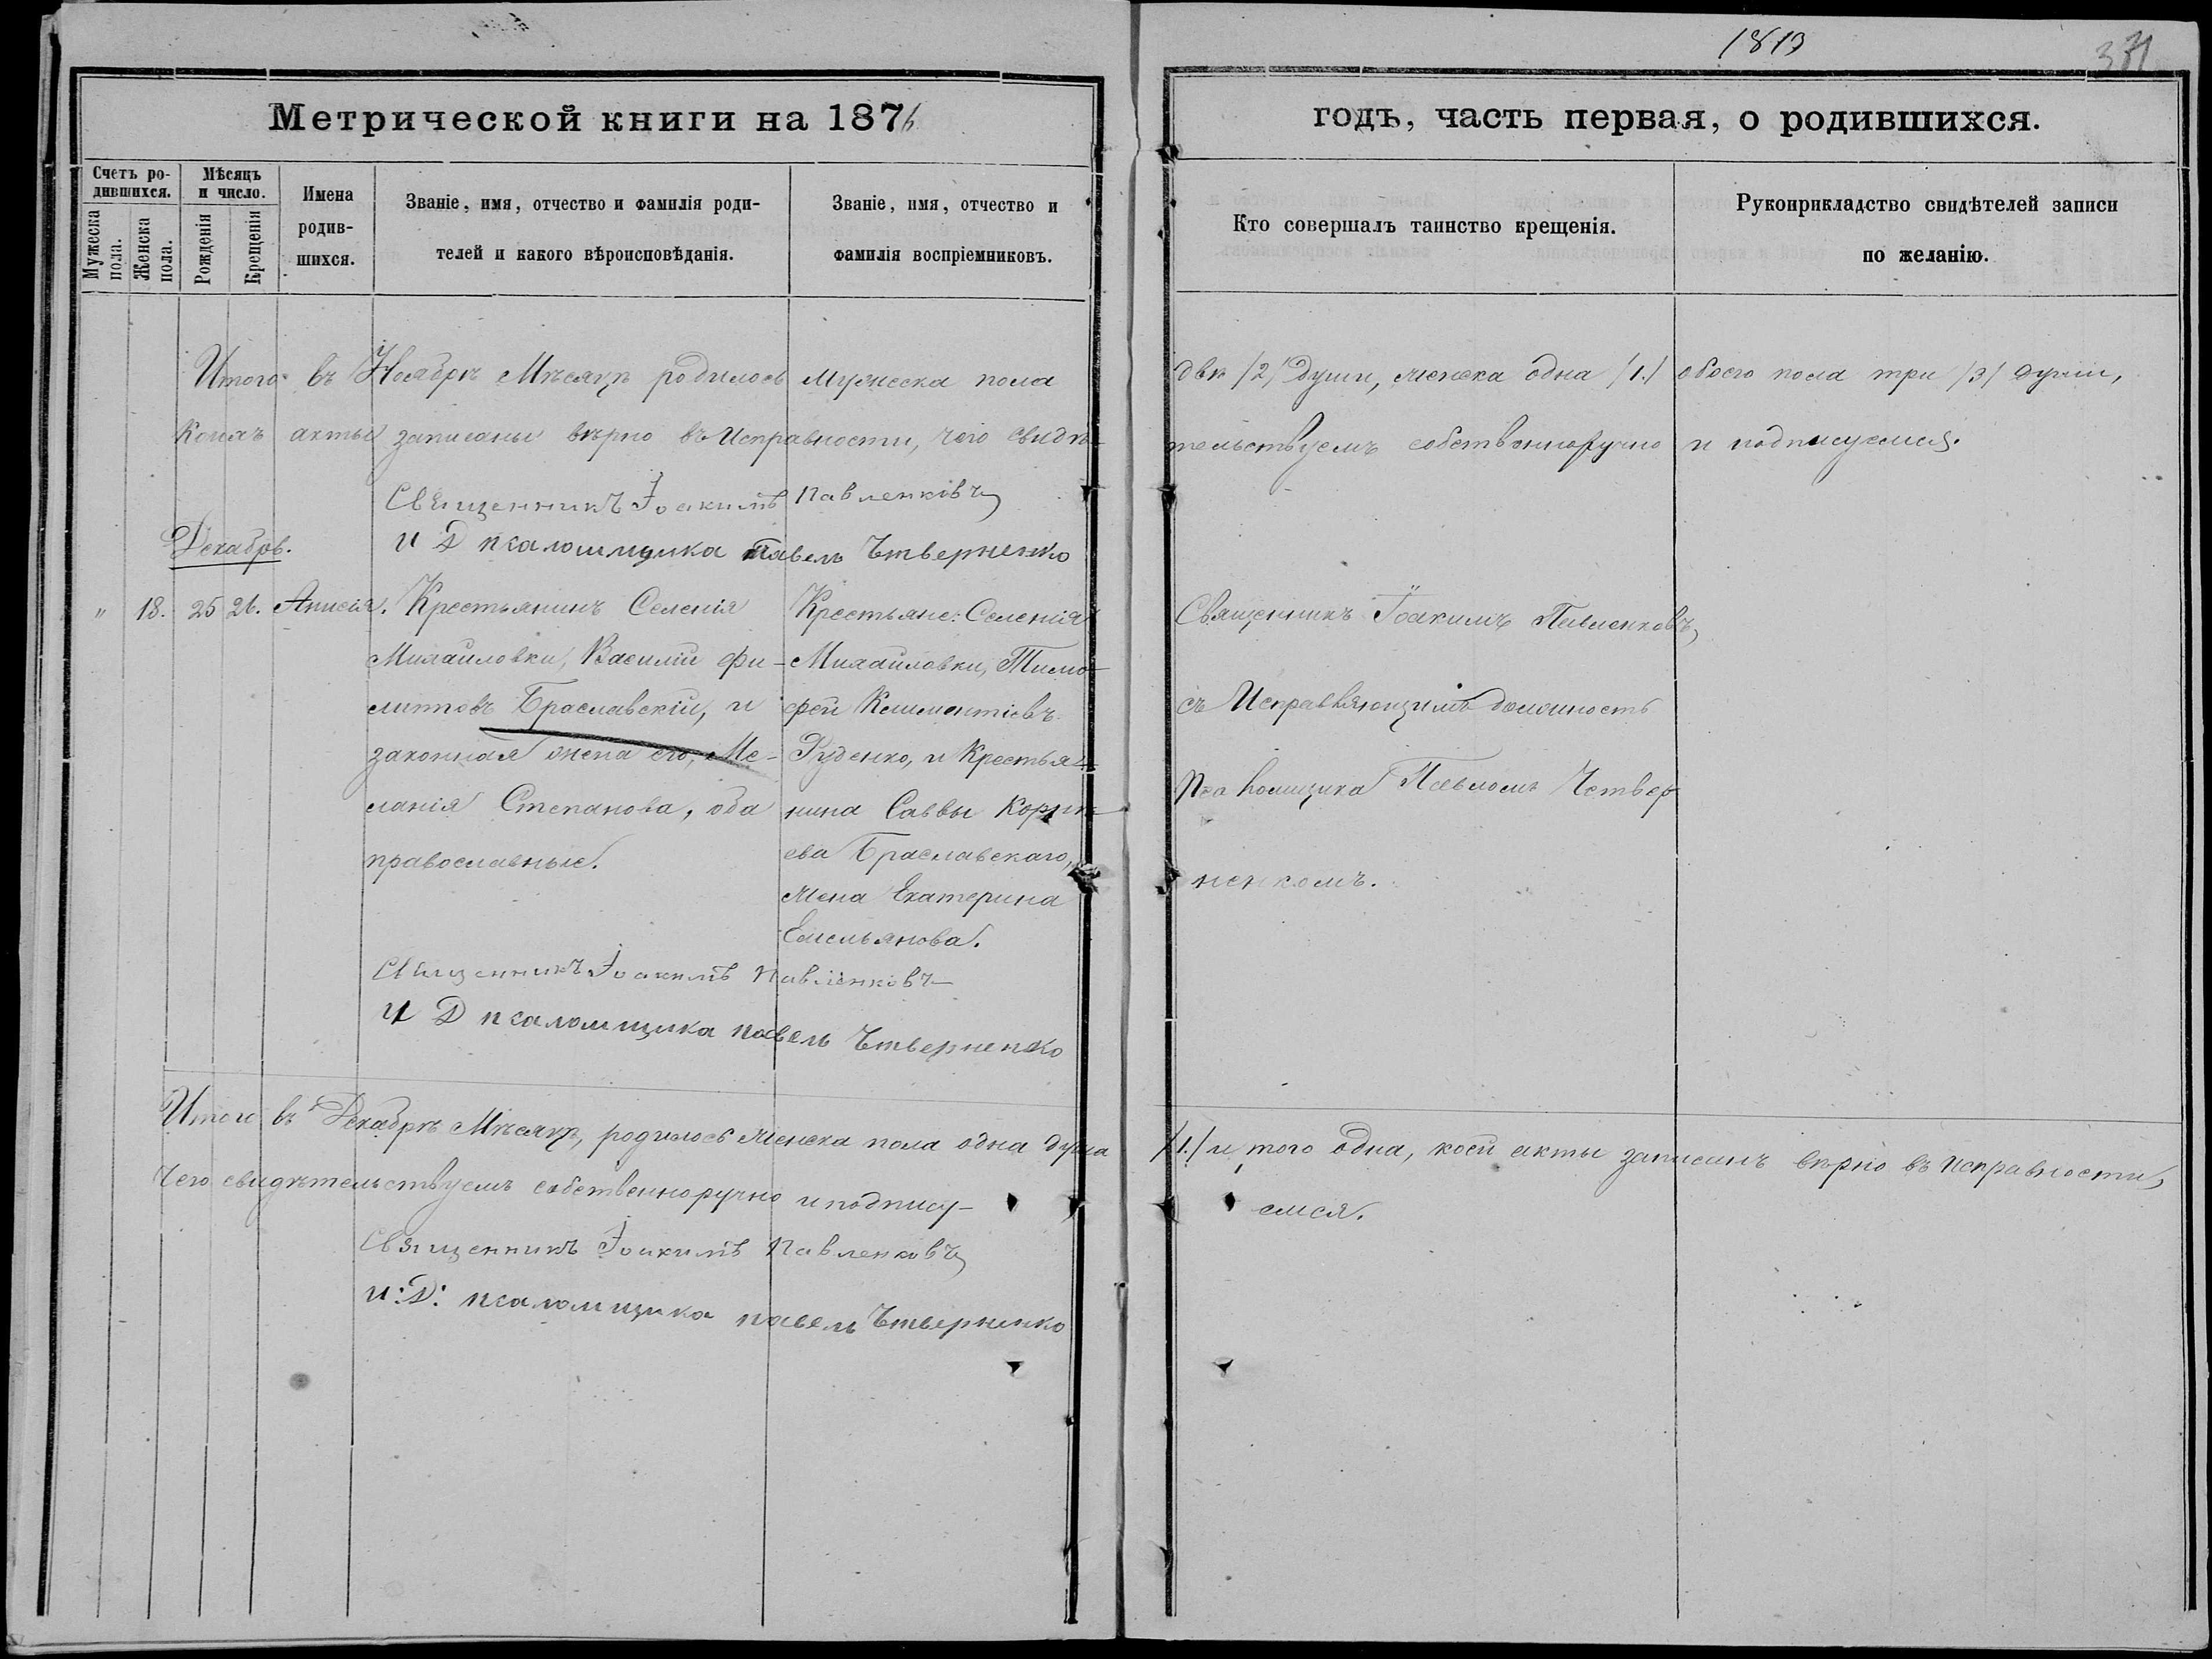 1813
371
Метрической книги на 1876
годъ, часть первая, о родившихся.
Счетъ ро-
дившихся.
Мужеска
пола.
Женска
пола.
Мѣсяцъ
и число.
Рожденія
Крещенія
Имена
родив-
шихся.
Званіе, имя, отчество и фамилія роди-
телей и какого вѣроисповѣданія.
Званіе, имя, отчество и
фамилія воспріемниковъ.
Кто совершалъ таинство крещенія.
Рукоприкладство свидѣтелей записи
по желанію.
Итого въ Ноябрѣ Мѣсяцѣ родилось мужеска пола двѣ /2/ души, женска одна /1./ обоего пола три /3/ души,
Коихъ акты записаны вѣрно въ Исправности, чего свидѣтельствуемъ собственноручно и подписуемся.
Священникъ Іоакимъ Павленковъ
И Д псаломщика павелъ Чтверненко
Декабрь.
" 18. 25 26. Анисія.
Крестьянинъ Селенія
Михаиловки, Василій Фи-
липповъ Браславскій, и
законная жена его, Ме-
ланія Степанова, оба
православные.
Крестьяне: Селенія
Михаиловки, Тимо-
фей Климентіевъ
Руденко, и Крестья-
нина Саввы Корнѣ-
ева Браславскаго,
жена Екатерина
Емельянова.
Священникъ Іоакимъ Павленковъ,
съ Исправляющимъ должность
Псаломщика Павломъ Четвер
ненкомъ.
Священникъ Іоакимъ Павленковъ
И Д псаломщика павелъ Чтверненко
Итого въ Декабрѣ Мѣсяцѣ, родилось женска пола одна душа /1./ и того одна, коей акты записанъ вѣрно въ исправности,
Чего свидѣтельствуемъ собственноручно и подпису- емся.
Священникъ Іоакимъ Павленковъ
И: Д: псаломщика павелъ Чтверненко